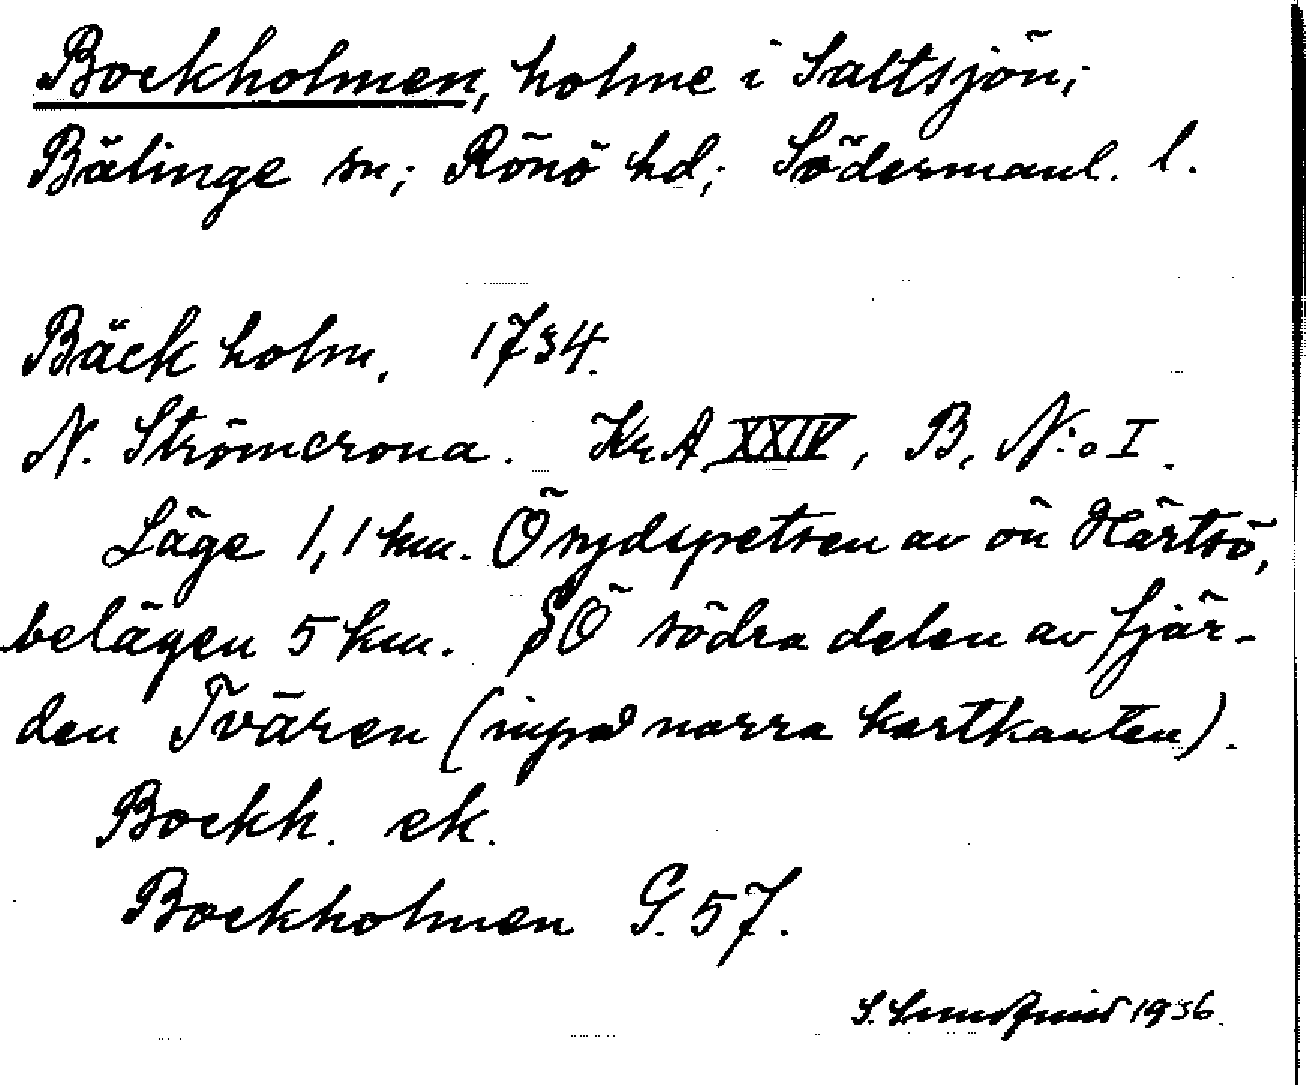 Bockholmen, holme i Saltsjön;
Bälinge sn; Rönö hd; Södermanl. l.
Bäck holm. 1734.
N. Strömcrona. Kr.A. XXIV, B, N:o I.
Läge 1,1 km. Ö sydspetsen av ön Härtsö,
belägen 5 km. SÖ södra delen av fjär-
den Tvären (inpå norra kartkanten).
Bockh. ek.
Bockholmen G. 57.
S. 1936.